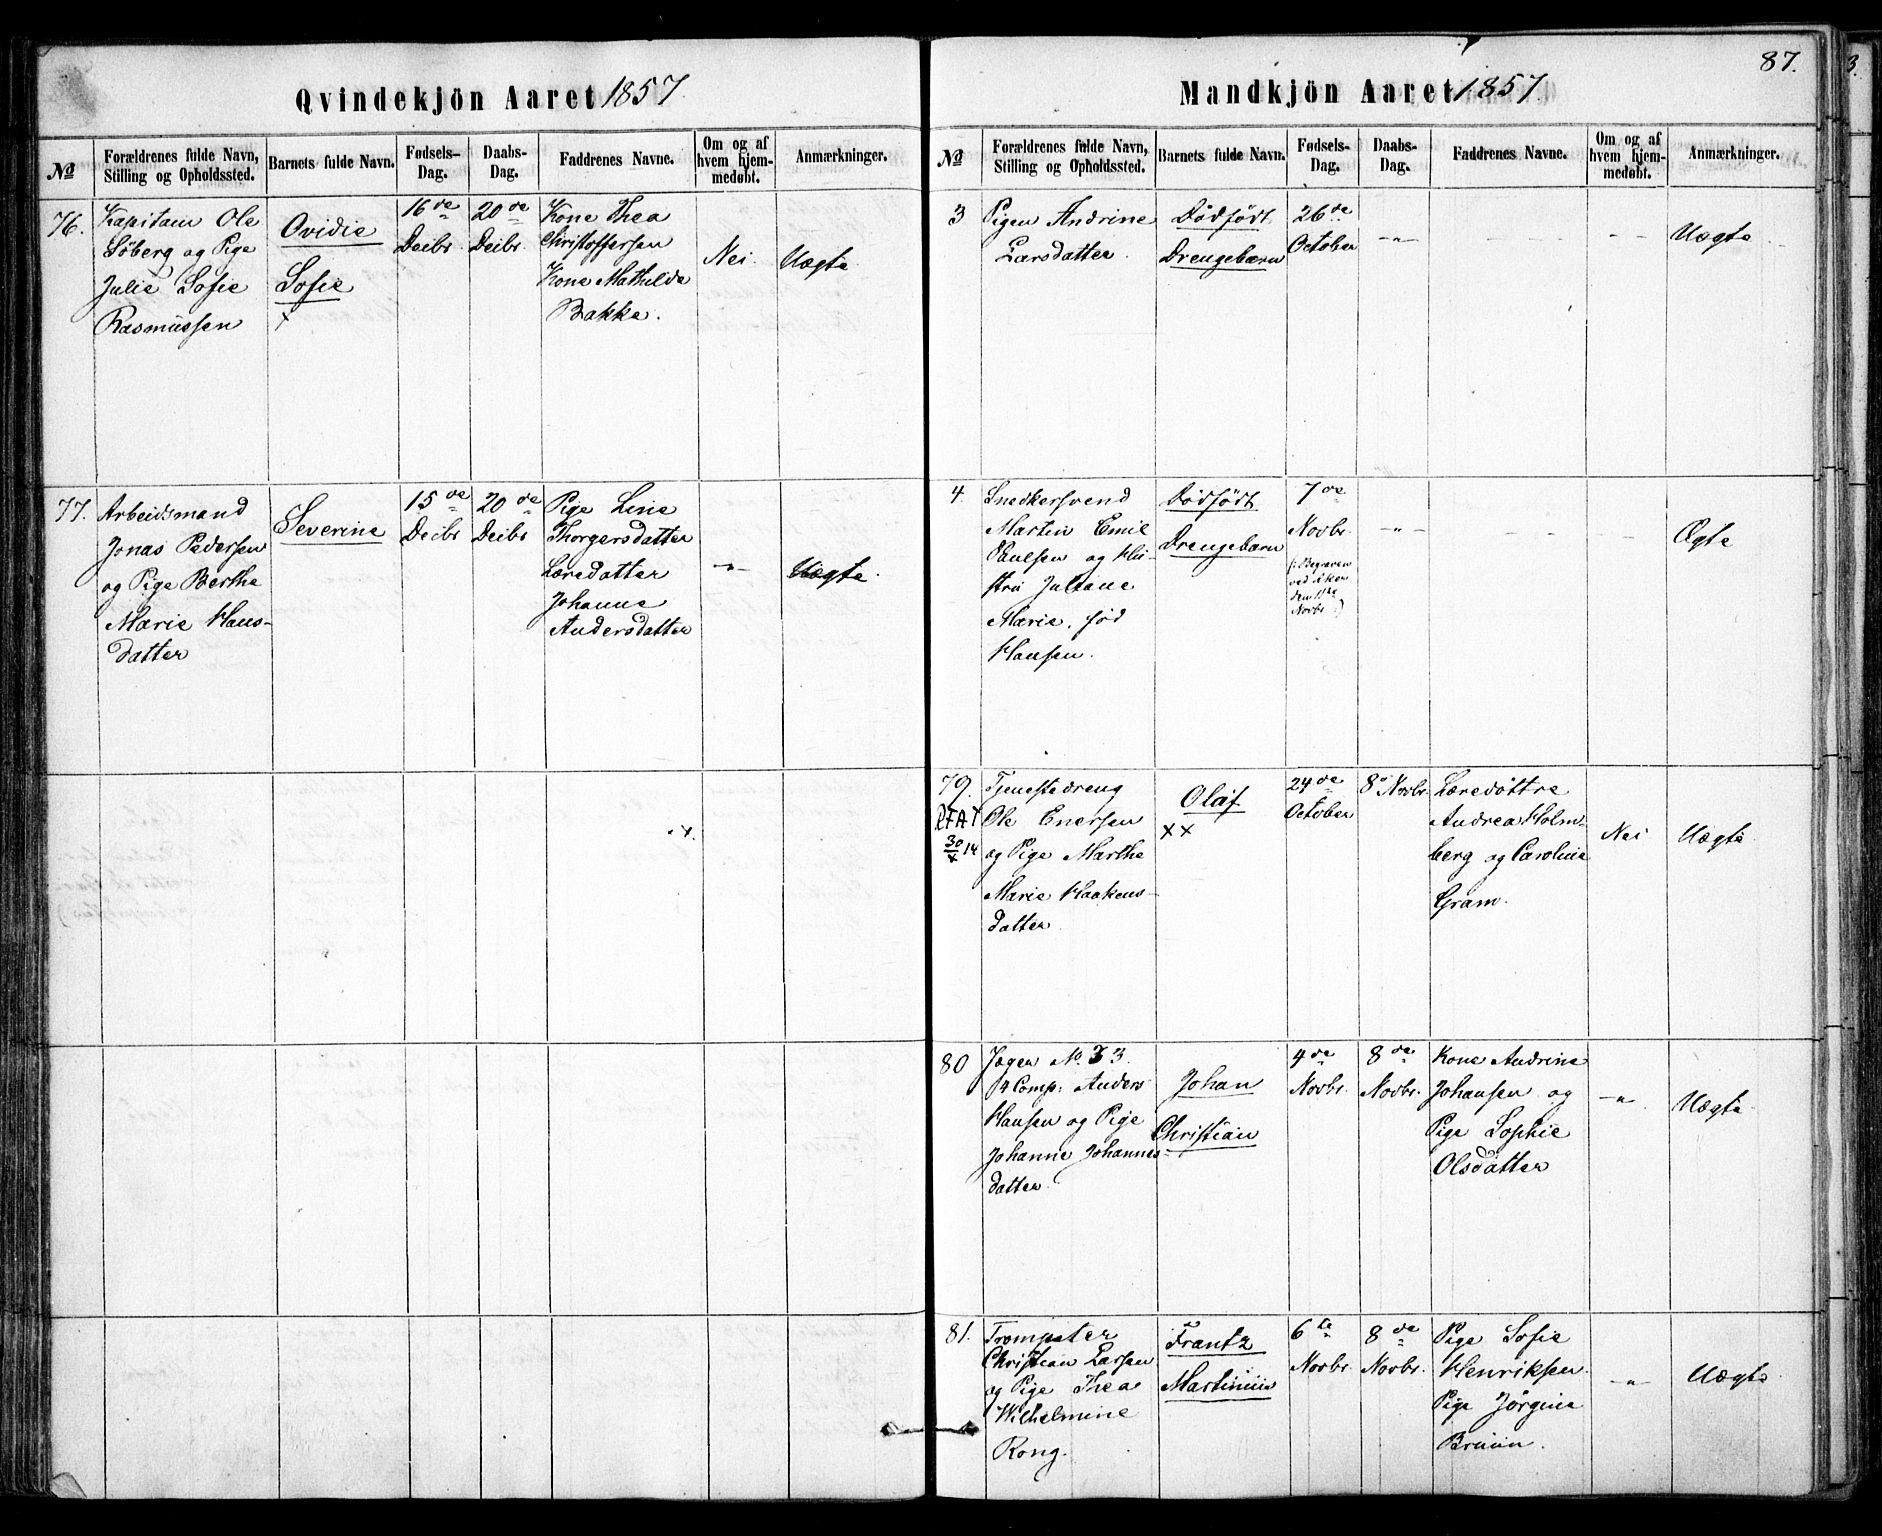 Qvindekjön Aaret 1857.
No
Forældrenes fulde Navn, Stilling og Opholdssted.
Barnets fulde Navn.
Fødsels-Dag.
Daabs-Dag.
Faddrenes Navne.
Om og af hvem hjem-medøbt.
Anmærkninger.
76.
Kapitain Ole
Söberg og Pige
Julie Sofie
Rasmussen
Ovidie
Sofie
x
16de
Decbr
20de
Decbr
Kone Thea
Christoffersen
Kone Mathilde
Bakke.
Nei
Uægte
77.
Arbeidsmand
Jonas Pedersen
og Pige Berthe
Marie Hans-
datter
Severine
15de
Decbr
20de
Decbr
Pige Line
Thorgersdatter
Læredatter
Johanne
Andersdatter
-"-
Uægte.
87.
Mandkjön Aaret 1857.
No
Forældrenes fulde Navn, Stilling og Opholdssted.
Barnets fulde Navn.
Fødsels-Dag.
Daabs-Dag.
Faddrenes Navne.
Om og af hvem hjem-medøbt.
Anmærkninger.
3
Pigen Andrine
Larsdatter.
Dödfödt
Drengebarn
26de
October
-"-
Uægte
4
Snedkersvend
Martin Emil
Paulsen og Hu-
stru Juliane
Marie, föd
Hansen.
Dödfödt
Drengebarn
7de
Novbr.
(: Begraven
den 11te
Novbr :)
-"-
Ægte
79.
30/x 14
Tjenestedreng
Ole Enersen
og Pige Marthe
Marie Haakens-
datter
Olaf
xx
24de
October
8 Novbr.
Læredöttre
Andrea Holm-
berg og Caroline
Gram.
Nei
Uægte
80
Jæger No 33.
4 Comp: Anders
Hansen og Pige
Johanne Johannes-
datter.
Johan
Christian
4de
Novbr.
8de
Novbr.
Kone Andrine
Johansen og
Pige Sophie
Olsdatter
-"-
Uægte
81.
Trompeter
Christian Larsen
og Pige Thea
Wilhelmine
Rong.
Frantz
Martinius
6te
Novbr.
8de
Novbr.
Pige Sofie
Henriksen.
Pige Jörgine
Bruun.
-"-
Uægte